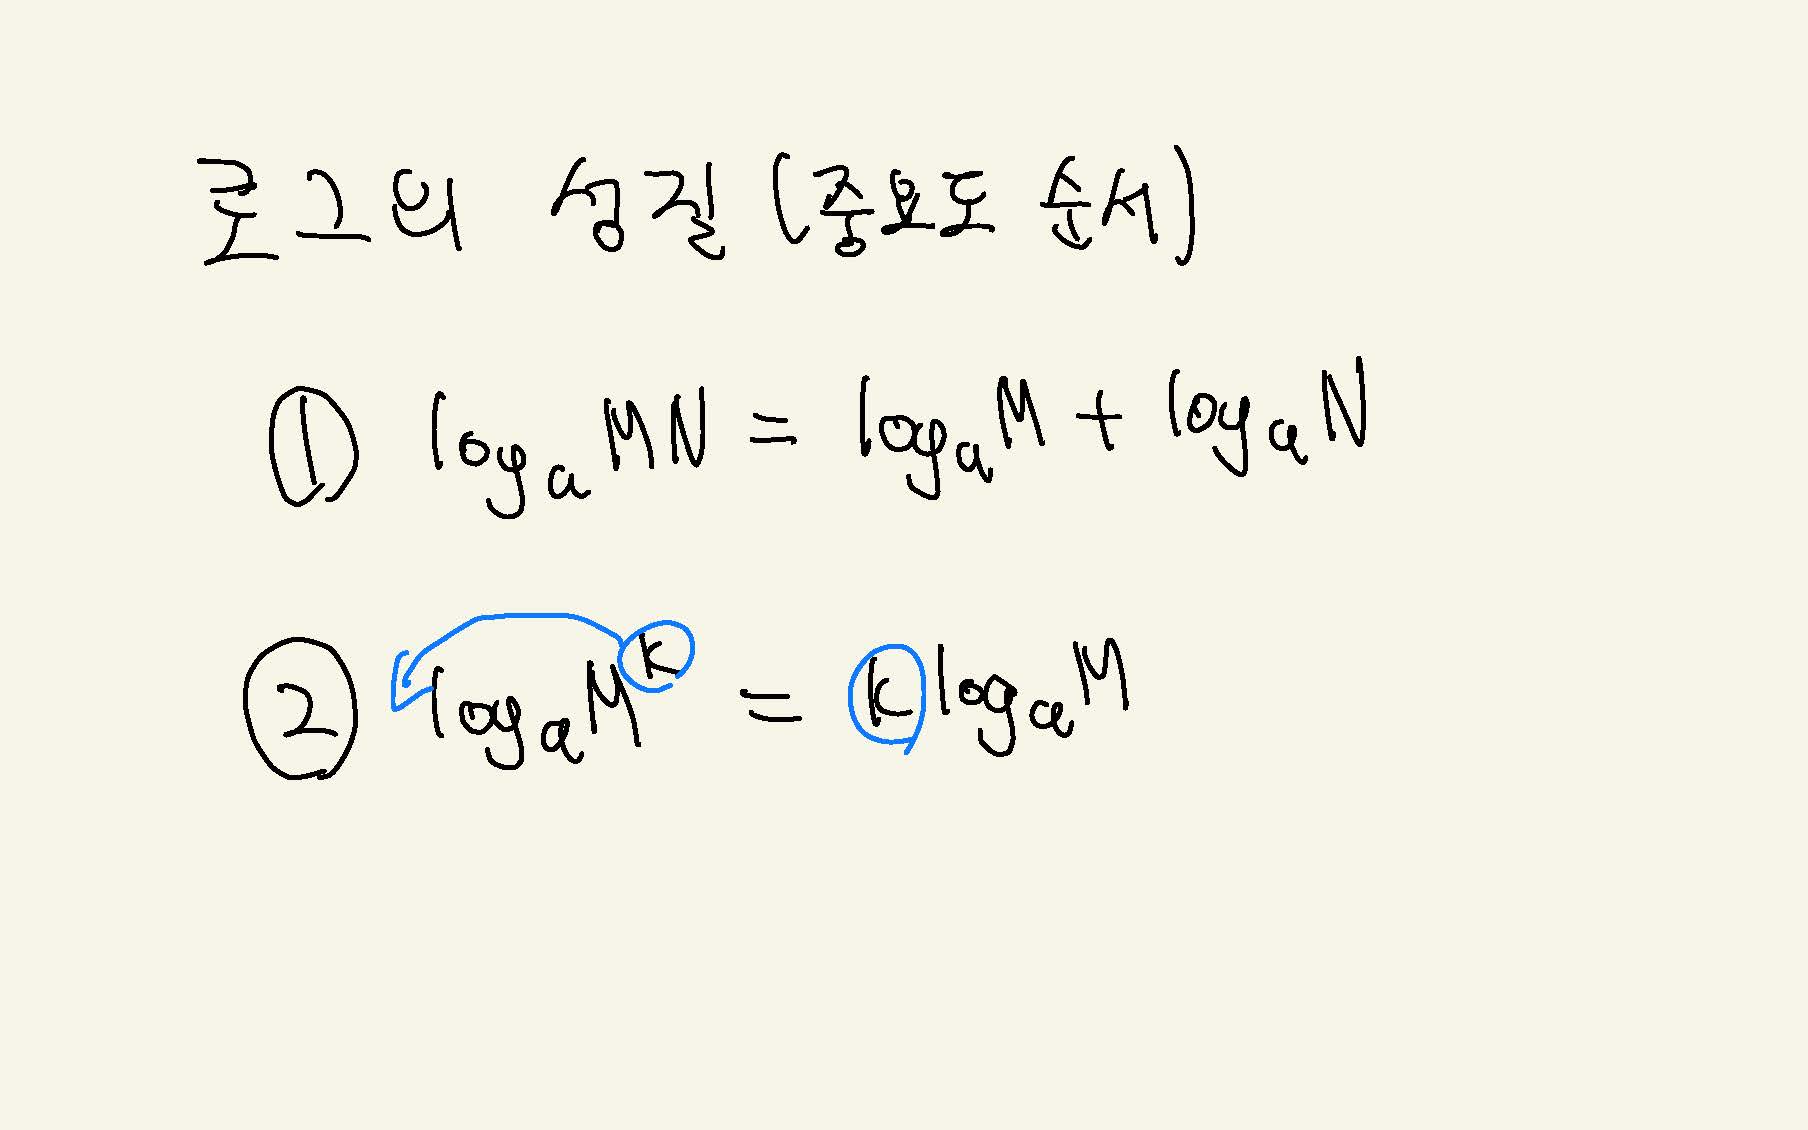 로그의 성질 (중요도 순서)
① logₐMN = logₐM + logₐN
② logₐMᵏ = k logₐM